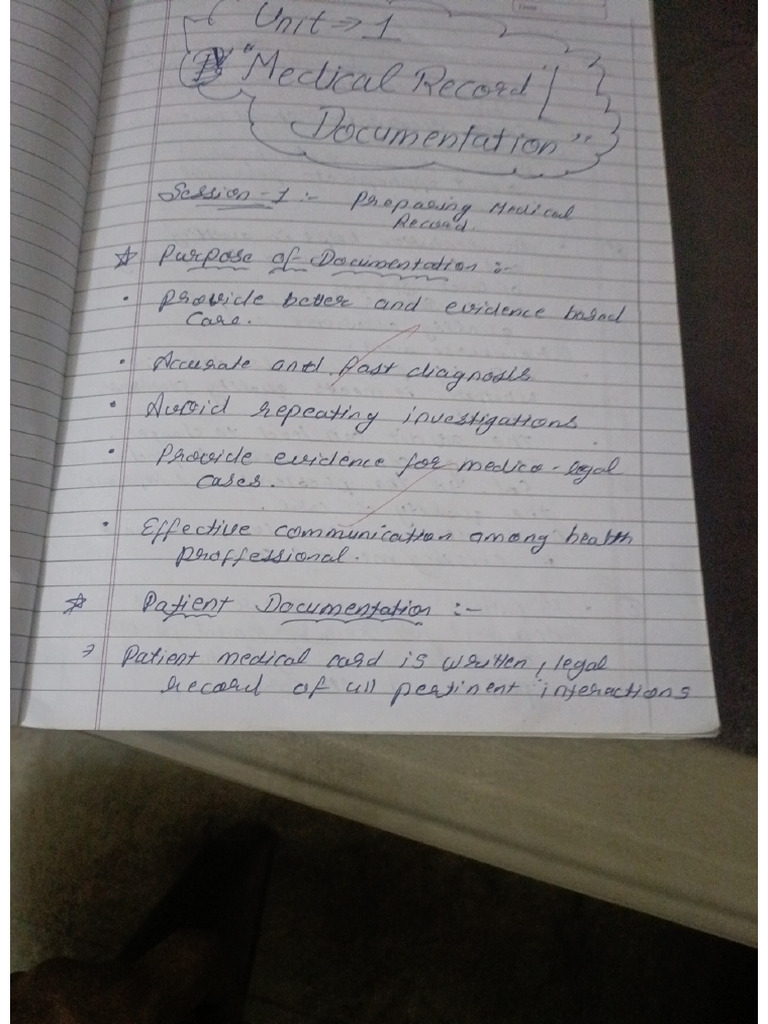 Unit ⇒ 1
"Medical Record
Documentation"
Session-1 :- Preparing Medical
Record.
☆ Purpose of Documentation :-
• Provide better and evidence based
Care.
• Accurate and fast diagnosis
• Avoid repeating investigations
• Provide evidence for medico-legal
cases.
• Effective communication among health
proffessional.
☆ Patient Documentation :-
⇒ Patient medical card is written, legal
record of all pertinent interactions